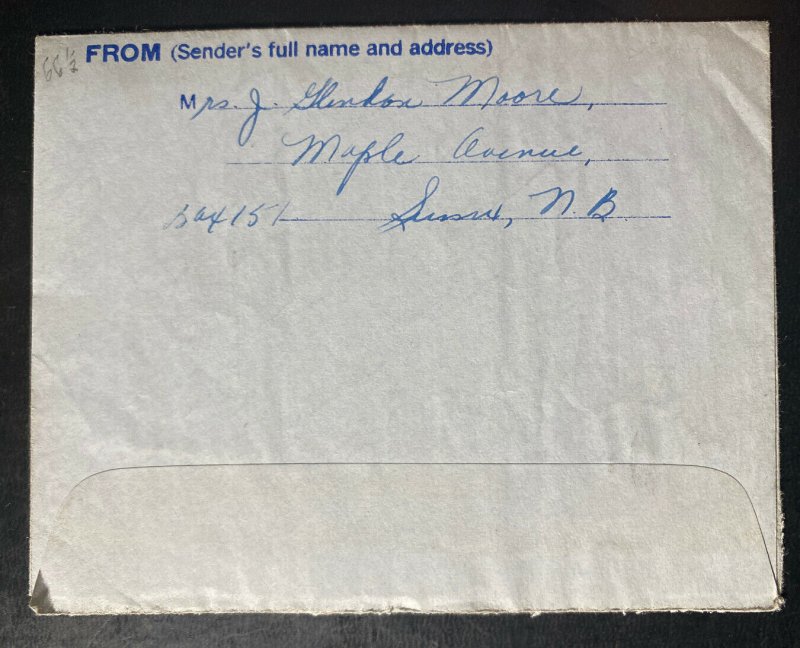 66 1/2 FROM (Sender's full name and address)
Mrs. J. Glendon Moore,
Maple Avenue,
Box 151 Sussex, N.B